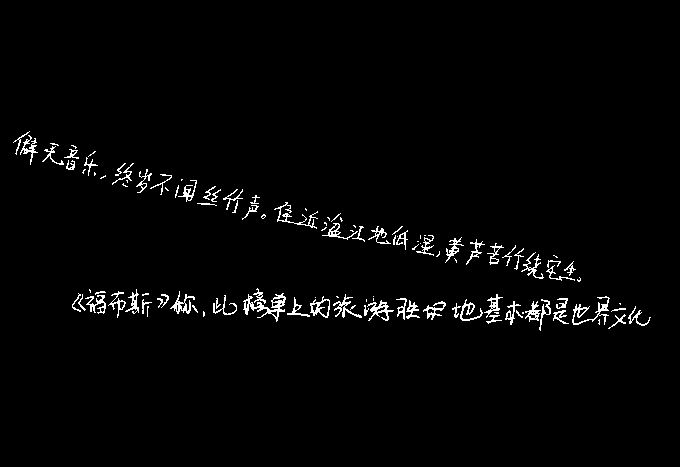 僻无音乐，终岁不闻丝竹声。住近湓江地低湿，黄芦苦竹绕宅生。
《福布斯》称，此榜单上的旅游胜地基本都是世界文化